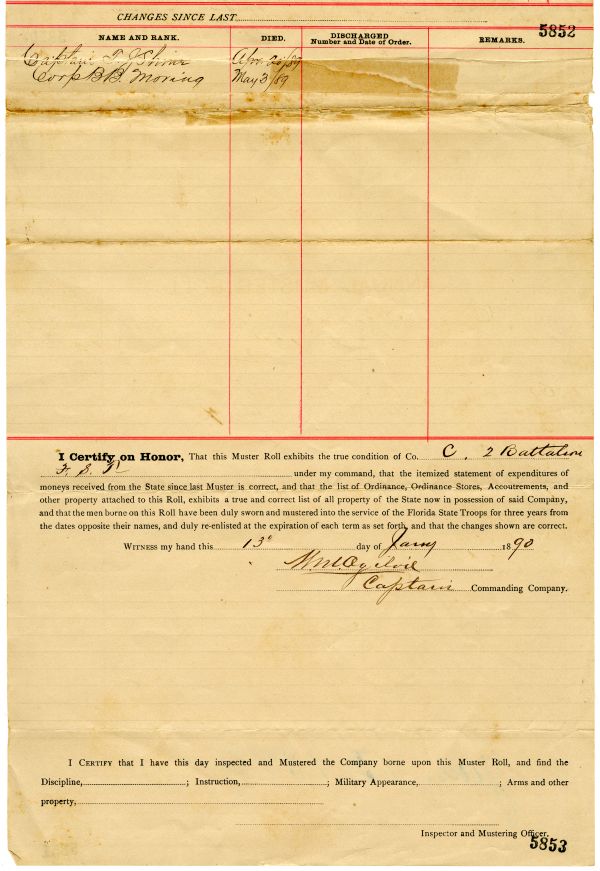 CHANGES SINCE LAST
5852
NAME AND RANK. DIED. DISCHARGED Number and Date of Order. REMARKS.
Captain T. J. Shine Apr. /89
Corp B.B. Moring May 3/89
I Certify on Honor, That this Muster Roll exhibits the true condition of Co. C. 2 Battalion
F. S. T. under my command, that the itemized statement of expenditures of
moneys received from the State since last Muster is correct, and that the list of Ordinance, Ordinance Stores, Accoutrements, and
other property attached to this Roll, exhibits a true and correct list of all property of the State now in possession of said Company,
and that the men borne on this Roll have been duly sworn and mustered into the service of the Florida State Troops for three years from
the dates opposite their names, and duly re-enlisted at the expiration of each term as set forth, and that the changes shown are correct.
WITNESS my hand this 13" day of Jany 1890
Wm Ogilvie
Captain Commanding Company.
I CERTIFY that I have this day inspected and Mustered the Company borne upon this Muster Roll, and find the
Discipline, ; Instruction, ; Military Appearance, ; Arms and other
property,
Inspector and Mustering Officer.
5853